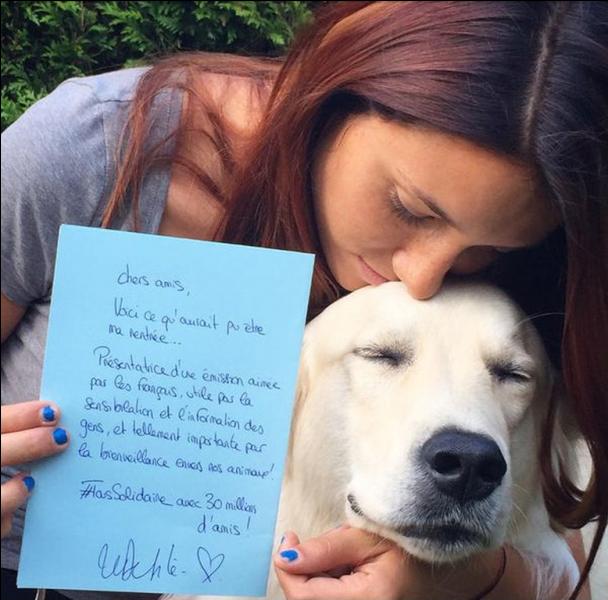 chers amis,
Voici ce qu'aurait pu être
ma rentrée...
Présentatrice d'une émission aimée
par les français, utile par la
sensibilation et l'information des
gens, et tellement importante par
la bienveillance envers nos animaux!
#TousSolidaire avec 30 millions
d'amis!